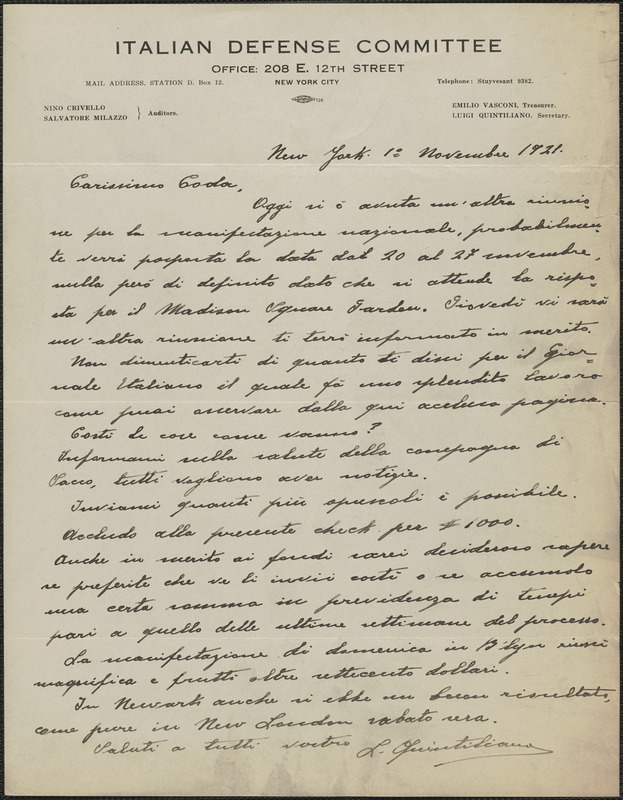 ITALIAN DEFENSE COMMITTEE
OFFICE: 208 E. 12TH STREET
MAIL ADDRESS, STATION D. Box 12.
NEW YORK CITY
Telephone: Stuyvesant 9382.
NINO CRIVELLO
SALVATORE MILAZZO } Auditors.
EMILIO VASCONI, Treasurer.
LUIGI QUINTILIANO, Secretary.
New York. 1º Novembre 1921.
Carissimo Coda,
Oggi si è avuta un'altra riunio
ne per la manifestazione nazionale, probabilmen-
te verrà posposta la data dal 20 al 27 novembre,
nulla però di definito dato che si attende la rispo-
sta per il Madison Square Garden. Giovedì vi sarà
un'altra riunione ti terrò informato in merito.
Non dimenticarti di quanto ti dissi per il Gior-
nale Italiano il quale fà uno splendito lavoro
come puoi osservare dalla qui acclusa pagina.
Costì le cose come vanno?
Informami sulla salute della compagna di
Sacco, tutti vogliono aver notizie.
Inviami quanti più opuscoli è possibile.
Accludo alla presente check per $1000.
Anche in merito ai fondi sarei desideroso sapere
se preferite che ve li invii costì o se accumulo
una certa somma in previdenza di tempi
pari a quello delle ultime settimane del processo.
La manifestazione di domenica in B'lyn riuscì
magnifica e fruttò oltre settecento dollari.
In Newark anche si ebbe un buon risultato,
come pure in New London sabato sera.
Saluti a tutti vostro L. Quintiliano